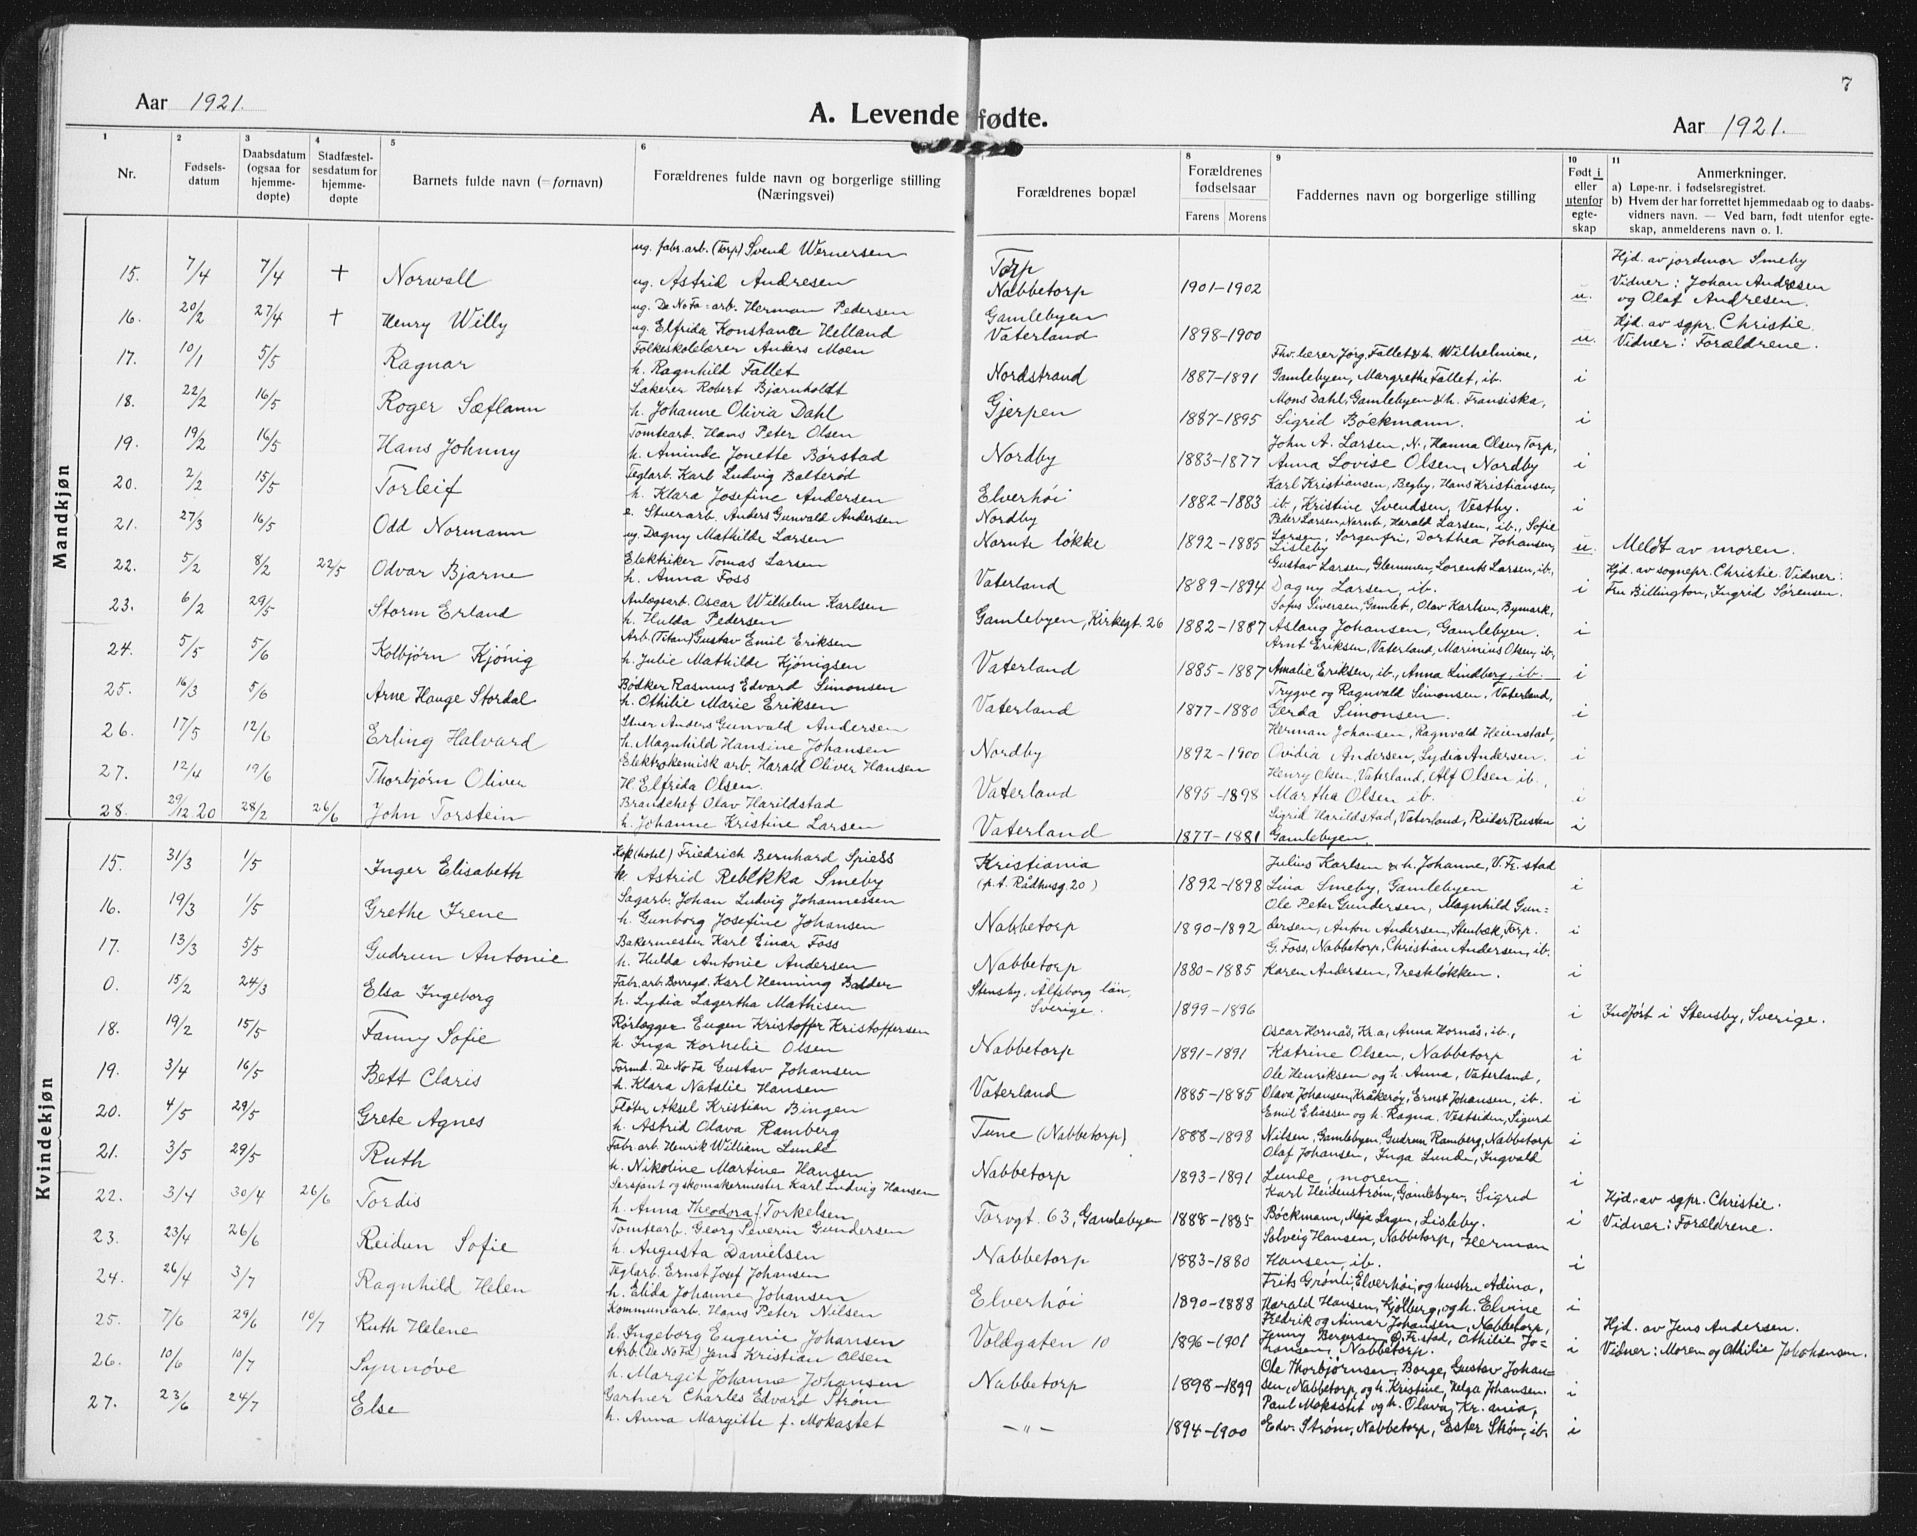 7
Aar 1921.
A. Levende fødte.
Aar 1921.
1 Nr.
2 Fødsels-datum
3 Daabsdatum (ogsaa for hjemme-døpte)
4 Stadfæstel-sesdatum for hjemme-døpte
5 Barnets fulde navn (= fornavn)
6 Forældrenes fulde navn og borgerlige stilling (Næringsvei)
Forældrenes bopæl
8 Forældrenes fødselsaar
Farens Morens
9 Faddernes navn og borgerlige stilling
10 Født i eller utenfor egte-skap
11 Anmerkninger.
a) Løpe-nr. i fødselsregistret.
b) Hvem der har forrettet hjemmedaab og to daabs-
vidners navn. — Ved barn, født utenfor egte-
skap, anmelderens navn o. l.
Mandkjøn
ug. fabr.arb. (Torp) Svend Wernersen Torp Hjd. av jordmor Smeby
15. 7/4 7/4 + Norwall ug. Astrid Andresen Nabbetorp 1901-1902 u. Vidner: Johan Andresen
og Olaf Andresen.
ug. De No Fa-arb. Herman Pedersen Gamlebyen Hjd. av sgpr. Christie
16. 20/2 27/4 + Henry Willy ug. Elfrida Konstance Helland Vaterland 1898-1900 u. Vidner: Forældrene.
Folkeskolelærer Ankers Moen Fhv. lærer Jørg. Fallet & h. Wilhelmine,
17. 10/1 5/5 Ragnar h. Ragnhild Fallet Nordstrand 1887-1891 Gamlebyen, Margrethe Fallet, ib. i
Sakfører Robert Bjarnholdt Mons Dahl, Gamlebyen & h. Fransiska,
18. 22/2 16/5 Roger Sæflann h. Johanne Olivia Dahl Gjerpen 1887-1895 Sigrid Bøckmann. i
Tomtearb. Hans Peter Olsen John A. Larsen, N., Hanna Olsen, Torp,
19. 19/2 16/5 Hans Johnny h. Aminde Jonette Børstad Nordby 1883-1877 Anna Lovise Olsen, Nordby i
Teglarb. Karl Ludvig Balterød Karl Kristiansen, Begby, Hans Kristiansen,
20. 2/2 15/5 Torleif h. Klara Josefine Andersen Elverhøi 1882-1883 ib., Kristine Svendsen, Vestby. i
e. Stuerarb. Anders Gunvald Andersen Nordby Peder Larsen, Narnt, Harald Larsen, ib., Sofie
21. 27/3 16/5 Odd Normann ug. Dagny Mathilde Larsen Narnte løkke 1892-1885 Larsen, Sorgenfri, Dorthea Johansen, Lisleby u. Meldt av moren.
Elektriker Tomas Larsen Gustav Larsen, Glemmen, Lorents Larsen, ib., Hjd. av sognepr. Christie. Vidner:
22. 5/2 8/2 22/5 Odvar Bjarne h. Anna Foss Vaterland 1889-1894 Dagny Larsen, ib. i Fru Billington, Ingrid Sørensen.
Anlægsarb. Oscar Wilhelm Karlsen Sofus Siversen, Gamleb., Olav Karlsen, Bymark,
23. 6/2 29/5 Storm Erland h. Hulda Pedersen Gamlebyen, Kirkegt. 26 1882-1887 Aslaug Johansen, Gamlebyen. i
Arb. (Titan) Gustav Emil Eriksen Arnt Eriksen, Vaterland, Marinius Olsen, ib.,
24. 5/5 5/6 Kolbjørn Kjønig h. Julie Mathilde Kjønigsen Vaterland 1885-1887 Amalie Eriksen, ib., Anna Lindberg, ib. i
Bødker Rasmus Edvard Simonsen Trygve og Ragnvald Simonsen, Vaterland,
25. 16/3 5/6 Arne Hauge Stordal h. Othilie Marie Eriksen Vaterland 1877-1880 Gerda Simonsen. i
Stuer Anders Gunvald Andersen Herman Johansen, Ragnvald Heimstad,
26. 17/5 12/6 Erling Halvard h. Magnhild Hansine Johansen Nordby 1892-1900 Ovidia Andersen, Lydia Andersen. i
Elektrokemisk arb. Harald Oliver Hansen Henry Olsen, Vaterland, Alf Olsen ib.,
27. 12/4 19/6 Thorbjørn Oliver H. Elfrida Olsen. Vaterland 1895-1898 Martha Olsen ib. i
Brandchef Olav Harildstad Sigrid Harildstad, Vaterland, Reider Rusten
28. 29/12.20 28/2 26/6 John Torstein h. Johanne Kristine Larsen Vaterland 1877-1881 Gamlebyen. i
Kvindekjøn
Kok (hotel) Friedrich Bernhard Spiess Kristiania Julius Karlsen & h. Johanne, V. Fr.stad
15. 31/3 1/5 Inger Elisabeth h. Astrid Rebekka Smeby (p.t. Rådhusg. 20) 1892-1898 Lina Smeby, Gamlebyen i
Sagarb. Johan Ludvig Johannessen Ole Peter Gundersen, Magnhild Gun=
16. 19/3 1/5 Grethe Irene h. Gunborg Josefine Johansen Nabbetorp 1890-1892 dersen, Anton Andersen, Stenbæk, Torp. i
Bakermester Karl Einar Foss G. Foss, Nabbetorp, Christian Andersen, ib.
17. 13/3 5/5 Gudrun Antonie h. Hulda Antonie Andersen Nabbetorp 1880-1885 Karen Andersen, Presteløkken. i
Fabr. arb. Borregd. Karl Henning Balder Stensby, Älfsborg län,
0. 15/2 24/3 Elsa Ingeborg h. Lydia Lagertha Mathisen Sverige. 1899-1896 i Indført i Stensby, Sverige.
Rørlægger Eugen Kristoffer Kristoffersen Oscar Hornås, Kr.a, Anna Hornås, ib.,
18. 19/2 15/5 Fanny Sofie h. Inga Kornelie Olsen Nabbetorp 1891-1891 Katrine Olsen, Nabbetorp i
Formd. De No Fa Gustav Johansen Ole Henriksen og h. Anna, Vaterland,
19. 3/4 16/5 Bett Claris h. Klara Natalie Hansen Vaterland 1885-1885 Olava Johansen, Kråkerøy, Ernst Johansen, ib. i
Fløter Aksel Kristian Bingen Emil Eliassen og h. Ragna. Vestsiden, Sigurd
20. 4/5 29/5 Grete Agnes h. Astrid Olava Ramberg Tune (Nabbetorp) 1888-1898 Nilsen, Gamlebyen, Gudrun Ramberg, Nabbetorp i
Fabr. arb. Henrik William Lunde Olaf Johansen, Inga Lunde, Ingvald
21. 3/5 29/5 Ruth h. Nikoline Martine Hansen Nabbetorp 1893-1891 Lunde, moren. i
Sersjant og skomakermester Karl Ludvig Hansen Karl Heidenstrøm, Gamlebyen, Sigrid Hjd. av sgpr. Christie.
22. 3/4 30/4 26/6 Tordis h. Anna Theodora f. Torkelsen Torvgt. 63, Gamlebyen 1888-1885 Bøckmann, Meja Lagen, Lisleby. i Vidner: Forældrene.
Tomtearb. Georg Severin Gundersen Solveig Hansen, Nabbetorp, Herman
23. 23/4 26/6 Reidun Sofie h. Augusta Danielsen Nabbetorp 1883-1880 Hansen, ib. i
Teglarb. Ernst Josef Johansen Frits Grønli, Elverhøi, og hustru Adina,
24. 26/4 3/7 Ragnhild Helen h. Elida Johanne Johansen Elverhøi 1890-1888 Harald Hansen, Kjølberg, og h. Elvine i
Kommunearb. Hans Peter Nilsen Fredrik og Aimar Johansen, Nabbetorp, Hjd. av Jens Andersen.
25. 7/6 29/6 10/7 Ruth Helene h. Ingeborg Eugenie Johansen Voldgaten 10 1896-1901 Jenny Bergersen, Ø. Fr.stad, Othilie Jo- i Vidner: Moren og Othilie Johansen.
hansen, Nabbetorp.
Arb. (De No Fa) Jens Kristian Olsen Ole Thorbjørnsen, Borge, Gustav Johan-
26. 10/6 10/7 Synnøve h. Margit Johanne Johansen Nabbetorp 1898-1899 sen, Nabbetorp, og h. Kristine, Helga Johansen. i
Gartner Charles Edvard Strøm Paul Mokastet og h. Olava, Kr.ania,
27. 23/6 24/7 Else h. Anna Margitte f. Mokastet —"— 1894-1900 Edv. Strøm, Nabbetorp, Ester Strøm, ib. i